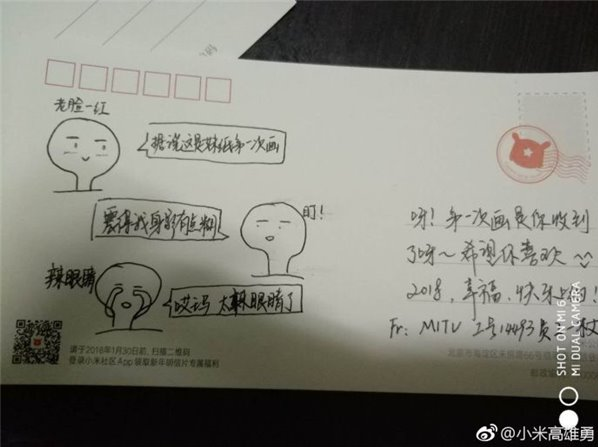 老脸一红
据说这是妹纸第一次画
盯!
辣眼睛
哎玛 太辣眼睛了
呀!第一次画是你收到
了呀~希望你喜欢
2018,幸福,快乐
Fr: MITU 工号14493员
请于2018年1月30日前,扫描二维码
登录小米社区App 领取新年明信片专属福利
北京市海淀区
SHOT ON MI 6
MI DUAL CAMERA
@小米高雄勇